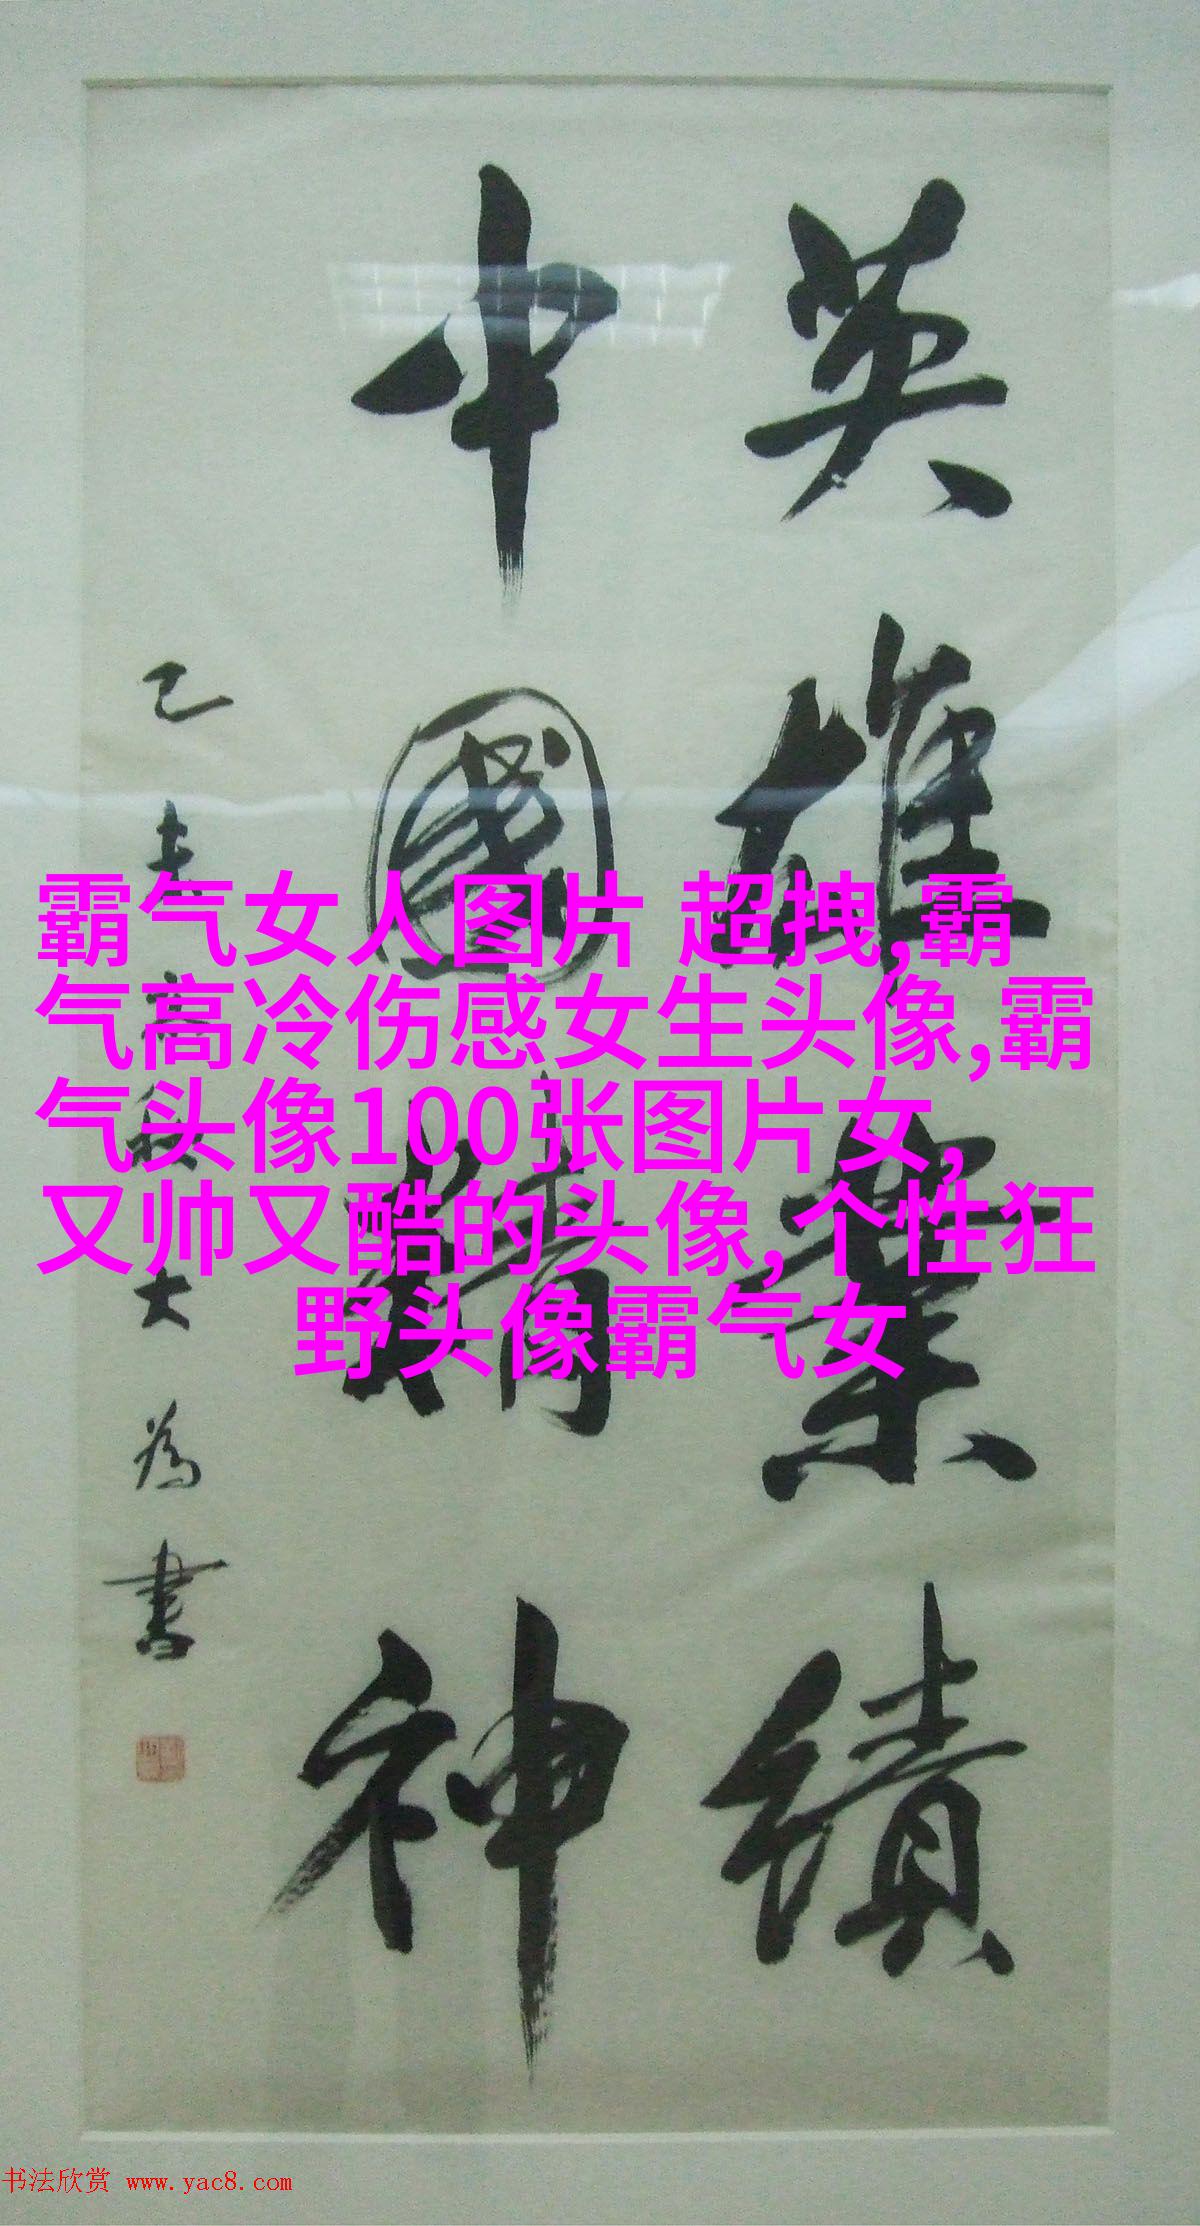 英雄業績
中國精神
乙未高秋大為書
霸气女人图片 超拽,霸
气高冷伤感女生头像,霸
气头像100张图片女,
又帅又酷的头像,个性狂
野头像霸气女
书法欣赏 www.yac8.com